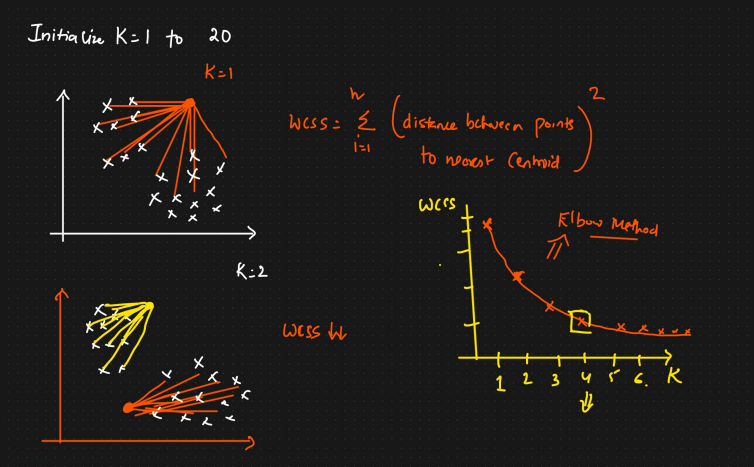 Initialize K=1 to 20
K=1
WCSS = n Σ i=1 (distance between points to nearest Centroid)2
WCSS
Elbow Method
K=2
WCSS ↓↓
1 2 3 4 5 6. K